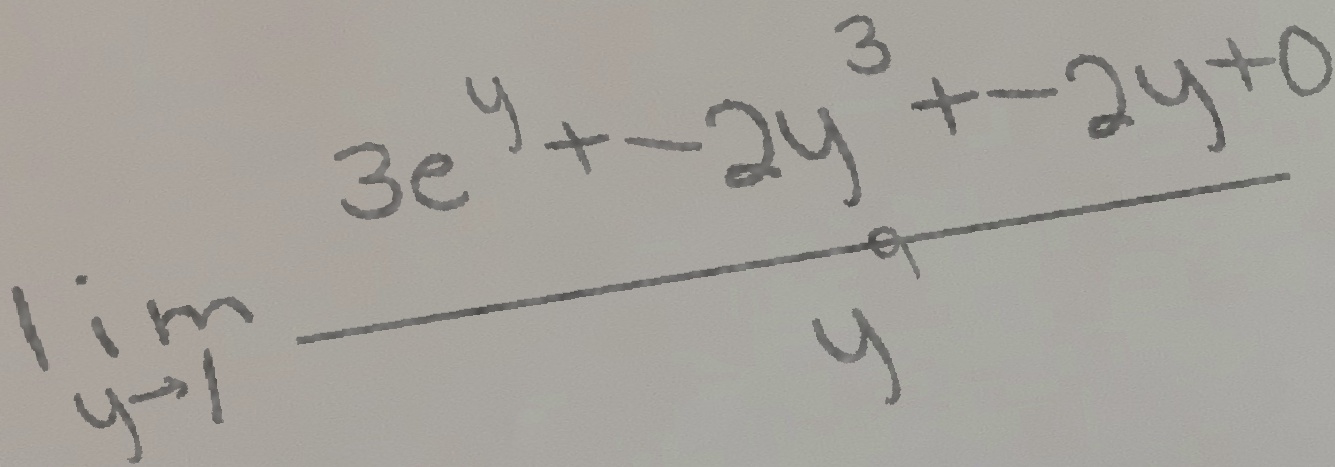 \lim_{y \to 1} \frac{3e^{y} + -2y^{3} + -2y + 0}{y^{9}}